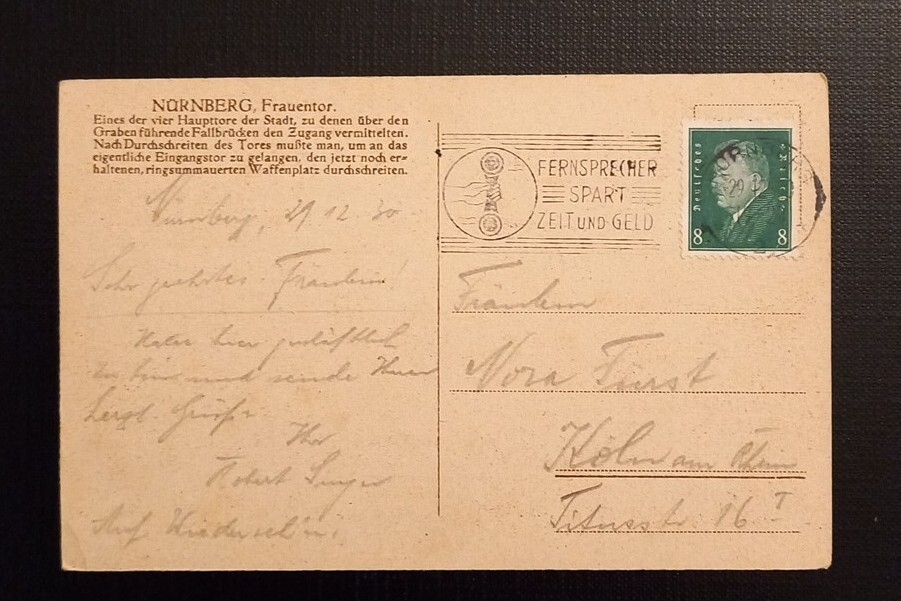 NÜRNBERG, Frauentor.
Eines der vier Haupttore der Stadt, zu denen über den
Graben führende Fallbrücken den Zugang vermittelten.
Nach Durchschreiten des Tores mußte man, um an das
eigentliche Eingangstor zu gelangen, den jetzt noch er-
haltenen, ringsummauerten Waffenplatz durchschreiten.
Nürnberg, 29 12 30
Sehr geehrtes Fräulein!
Habe hier geschäftlich
zu tun und sende Ihnen
herzl. Grüße
Ihr
Robert
Auf Wiederseh'n!
FERNSPRECHER
SPART
ZEIT UND GELD
Deutsches Reich
8 8
Fräulein
Nora Fürst
Köln am Rhein
Titusstr. 16 I